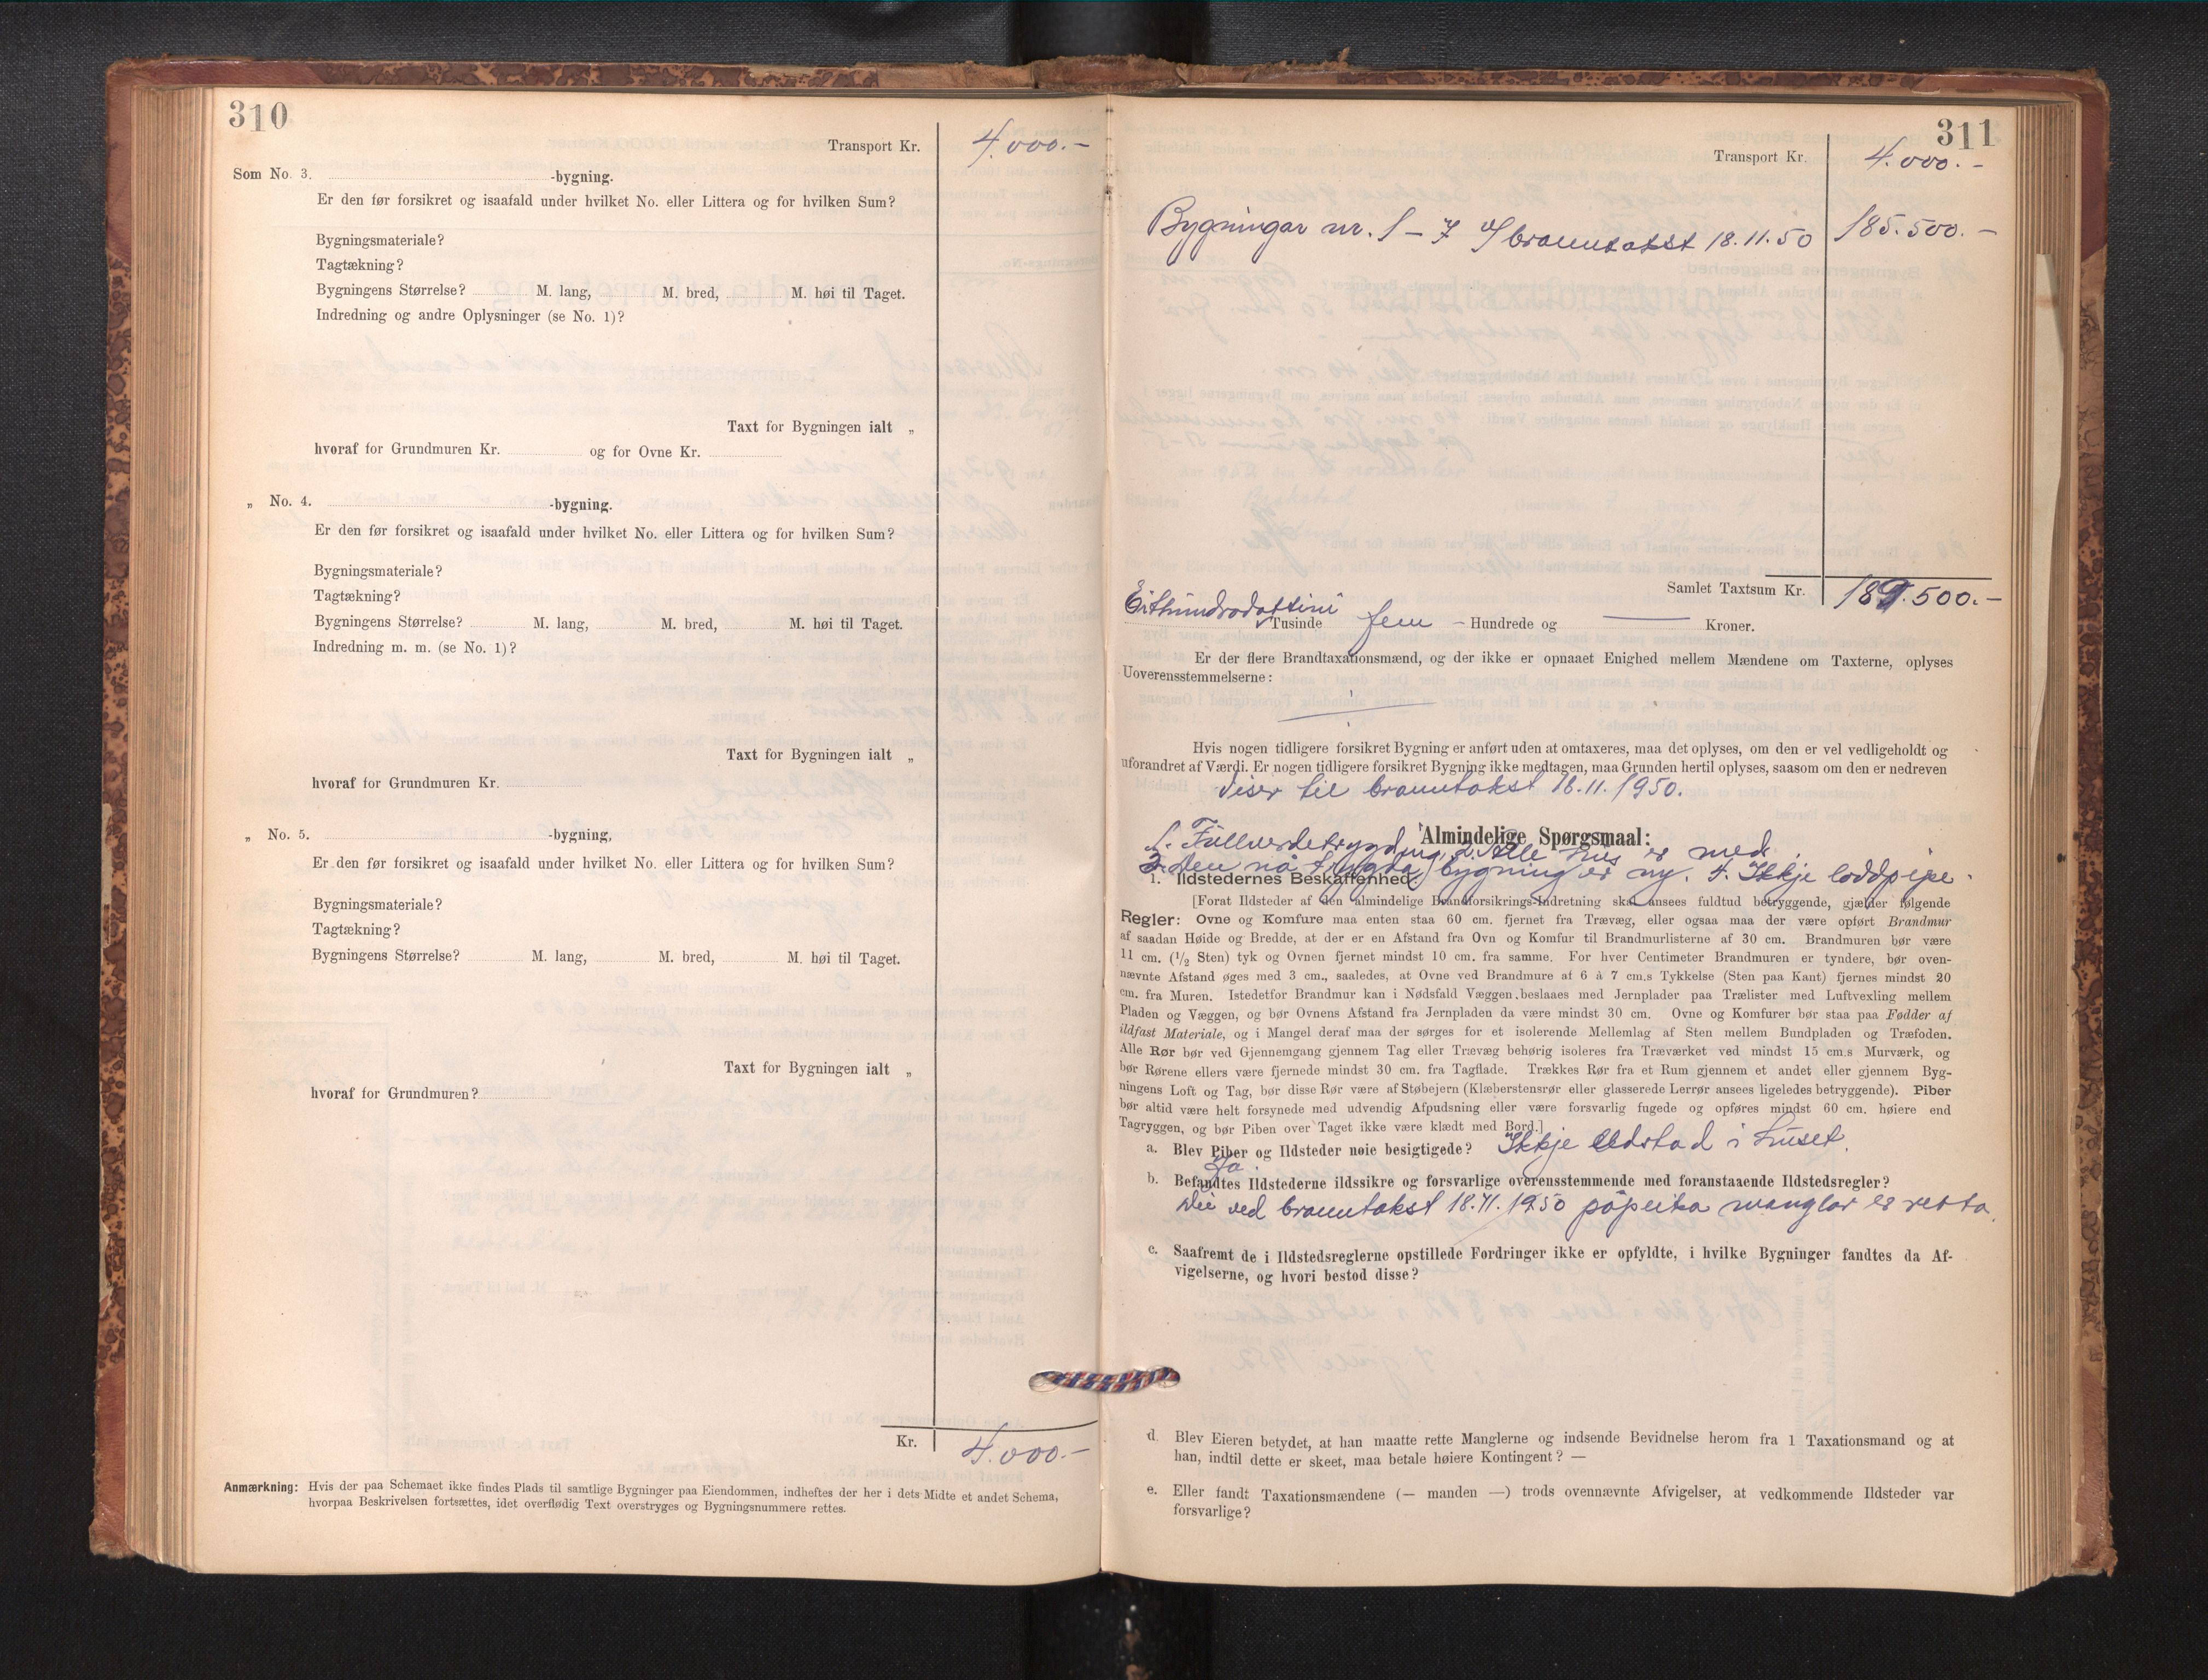 310
Transport Kr. 4.000.-
Som No. 3. -bygning.
Er den før forsikret og isaafald under hvilket No. eller Littera og for hvilken Sum?
Bygningsmateriale?
Tagtækning?
Bygningens Størrelse? M. lang, M. bred, M. høi til Taget.
Indredning og andre Oplysninger (se No. 1)?
Taxt for Bygningen ialt „
hvoraf for Grundmuren Kr. og for Ovne Kr.
„ No. 4. -bygning.
Er den før forsikret og isaafald under hvilket No. eller Littera og for hvilken Sum?
Bygningsmateriale?
Tagtækning?
Bygningens Størrelse? M. lang, M. bred, M. høi til Taget.
Indredning m. m. (se No. 1)?
Taxt for Bygningen ialt „
hvoraf for Grundmuren Kr.
„ No. 5. -bygning,
Er den før forsikret og isaafald under hvilket No. eller Littera og for hvilken Sum?
Bygningsmateriale?
Tagtækning?
Bygningens Størrelse? M. lang, M. bred, M. høi til Taget.
Taxt for Bygningen ialt „
hvoraf for Grundmuren?
Kr. 4.000.-
Anmærkning: Hvis der paa Schemaet ikke findes Plads til samtlige Bygninger paa Eiendommen, indheftes der her i dets Midte et andet Schema,
hvorpaa Beskrivelsen fortsættes, idet overflødig Text overstryges og Bygningsnummere rettes.
311
Transport Kr. 4.000.-
Bygningar nr. 1-7 branntakst 18.11.50 185.500.-
Samlet Taxtsum Kr. 189.500.-
Eithundradottini Tusinde fem - Hundrede og — Kroner.
Er der flere Brandtaxationsmænd, og der ikke er opnaaet Enighed mellem Mændene om Taxterne, oplyses
Uoverensstemmelserne:
Hvis nogen tidligere forsikret Bygning er anført uden at omtaxeres, maa det oplyses, om den er vel vedligeholdt og
uforandret af Værdi. Er nogen tidligere forsikret Bygning ikke medtagen, maa Grunden hertil oplyses, saasom om den er nedreven
Viser til branntakst 18.11.1950.
Almindelige Spørgsmaal:
1. Fullverdetrygding. 2. Alle hus er med.
3. Den nå trygda bygning er ny. 4. Ikkje loddpipe.
1. Ildstedernes Beskaffenhed.
[Forat Ildsteder af den almindelige Brandforsikrings-Indretning skal ansees fuldtud betryggende, gjælder følgende
Regler: Ovne og Komfure maa enten staa 60 cm. fjernet fra Trævæg, eller ogsaa maa der være opført Brandmur
af saadan Høide og Bredde, at der er en Afstand fra Ovn og Komfur til Brandmurlisterne af 30 cm. Brandmuren bør være
11 cm. (1/2 Sten) tyk og Ovnen fjernet mindst 10 cm. fra samme. For hver Centimeter Brandmuren er tyndere, bør oven-
nævnte Afstand øges med 3 cm., saaledes, at Ovne ved Brandmure af 6 à 7 cm.s Tykkelse (Sten paa Kant) fjernes mindst 20
cm. fra Muren. Istedetfor Brandmur kan i Nødsfald Væggen beslaaes med Jernplader paa Trælister med Luftvexling mellem
Pladen og Væggen, og bør Ovnens Afstand fra Jernpladen da være mindst 30 cm. Ovne og Komfurer bør staa paa Fødder af
ildfast Materiale, og i Mangel deraf maa der sørges for et isolerende Mellemlag af Sten mellem Bundpladen og Træfoden.
Alle Rør bør ved Gjennemgang gjennem Tag eller Trævæg behørig isoleres fra Træværket ved mindst 15 cm.s Murværk, og
bør Rørene ellers være fjernede mindst 30 cm. fra Tagflade. Trækkes Rør fra et Rum gjennem et andet eller gjennem Byg-
ningens Loft og Tag, bør disse Rør være af Støbejern (Klæberstensrør eller glasserede Lerrør ansees ligeledes betryggende). Piber
bør altid være helt forsynede med udvendig Afpudsning eller være forsvarlig fugede og opføres mindst 60 cm. høiere end
Tagryggen, og bør Piben over Taget ikke være klædt med Bord.]
a. Blev Piber og Ildsteder nøie besigtigede? Ikkje eldstad i huset.
Ja.
b. Befandtes Ildstederne ildssikre og forsvarlige overensstemmende med foranstaaende Ildstedsregler?
Dei ved branntakst 18.11.1950 påpeika manglar er retta.
c. Saafremt de i Ildstedsreglerne opstillede Fordringer ikke er opfyldte, i hvilke Bygninger fandtes da Af-
vigelserne, og hvori bestod disse?
d. Blev Eieren betydet, at han maatte rette Manglerne og indsende Bevidnelse herom fra 1 Taxationsmand og at
han, indtil dette er skeet, maa betale høiere Kontingent? —
e. Eller fandt Taxationsmændene (— manden —) trods ovennævnte Afvigelser, at vedkommende Ildsteder var
forsvarlige?